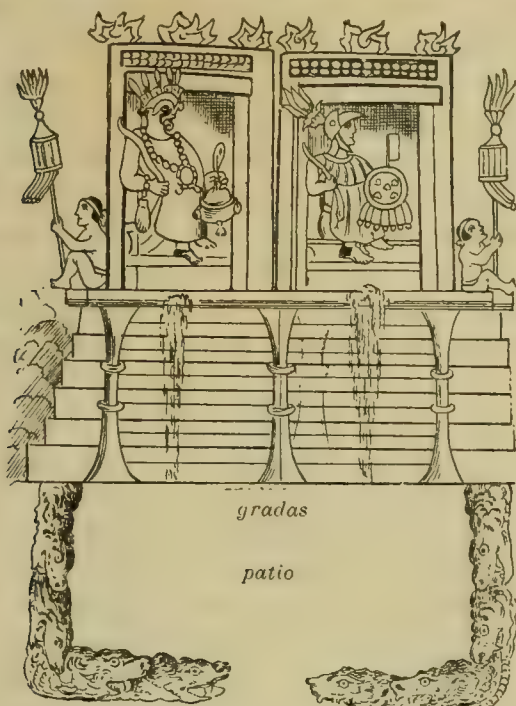 gradas
patio